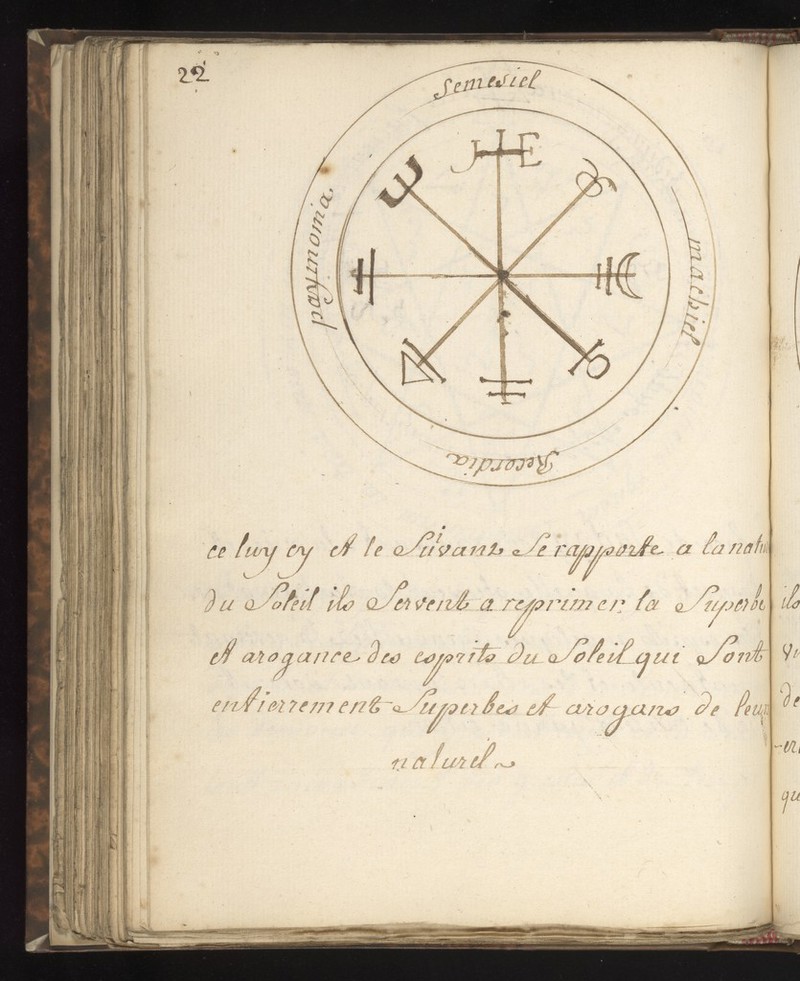 22
Semesiel
machiel
Recordia
paymonia
ce luy cy et le Suivant Se rapporte a la natu
du Soleil ils Servent a reprimer la Superbe
et arogance des esprits du Soleil qui Sont
entierrement Superbes et arogans de leur
naturel
ils
de
qu